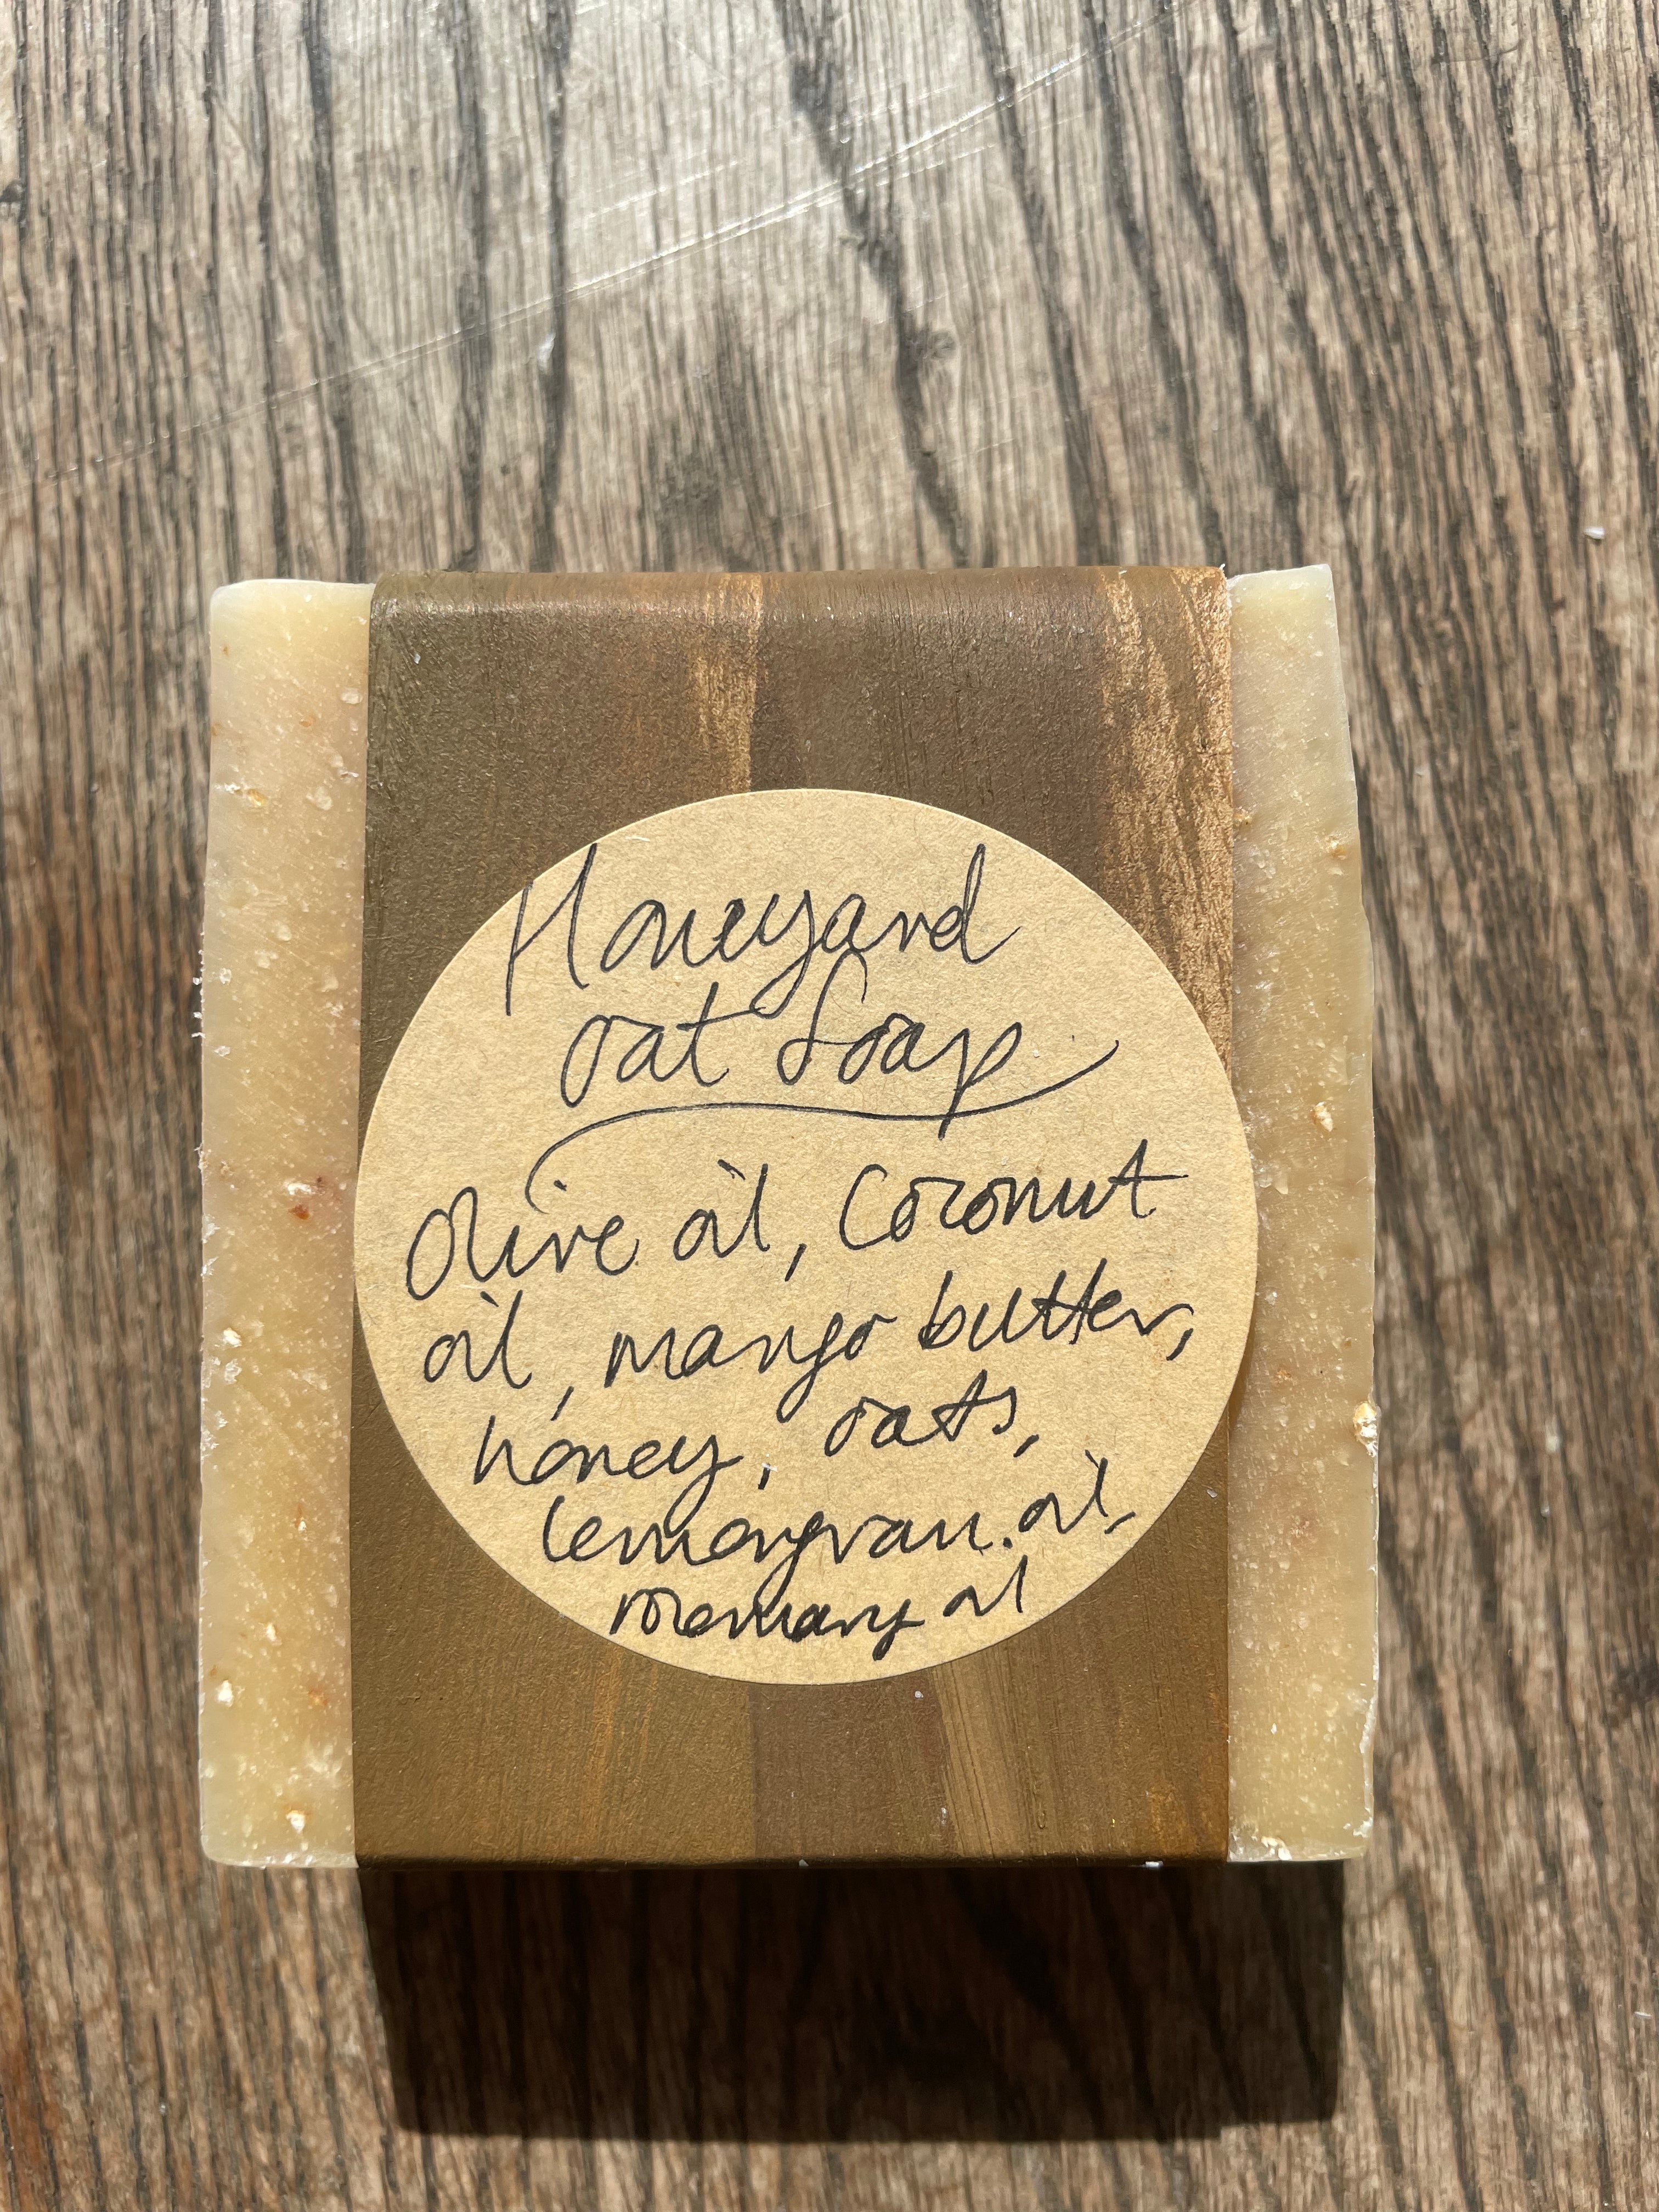 Honeyard
oat Soap
Olive oil, Coconut
oil, mango butter,
honey, oats,
lemongrass. oil,
rosemary oil